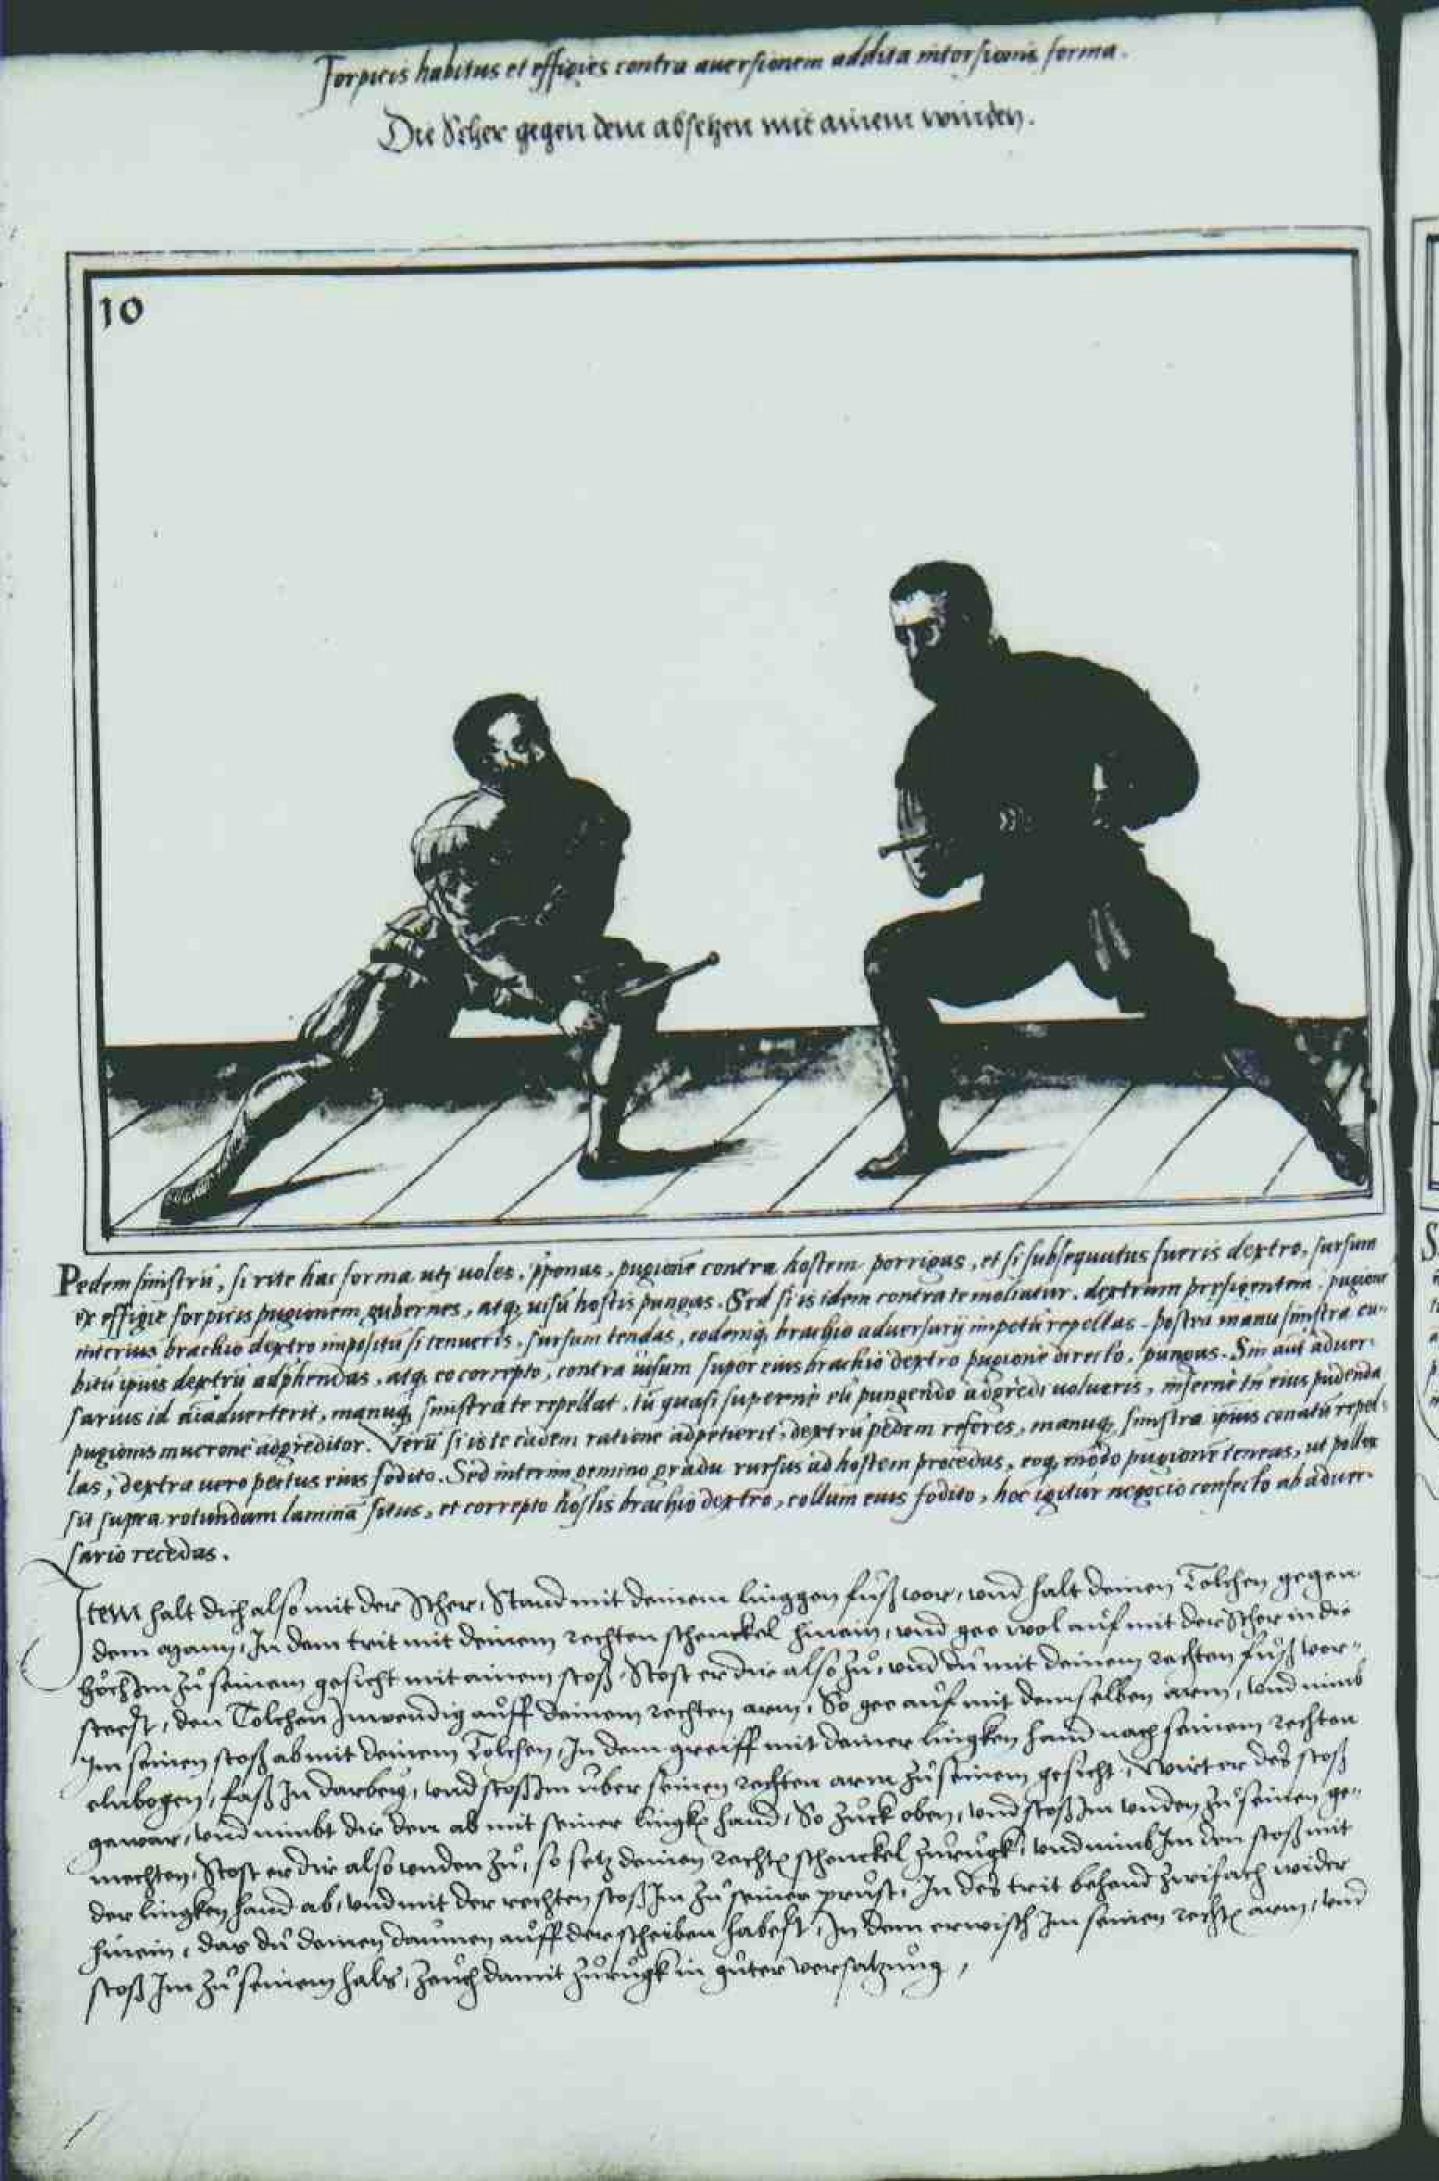 Forpicis habitus et effigies contra auersionem addita intorsionis forma.
Die Scher gegen dem absetzen mit ainem winden.
10
Pedem sinistrū, si rite hac forma uti uoles, pponas, pugionē contra hostem porrigas, et si subsequutus fueris dextro, sursum
ex effigie forpicis pugionem gubernes, atq; uisū hostis pungas. Sed si is idem contra te moliatur, dextrum prefigentem, pugione
interius brachio dextro impositū si tenueris, sursum tendas, eodemq; brachio aduersarij impetū repellas. postea manu sinistra cu=
bitū ipsius dextrū adphendas, atq; eo correpto, contra uisum super eius brachio dextro pugione directo, pungas. Sin aut aduer=
sarius id aiaduerterit, manuq; sinistra te repellat, tū quasi supernè eū pungendo adgredi uolueris, infernè tn eius pudenda
pugionis mucrone adgreditor. Verū si is te eadem ratione adpetierit, dextrū pedem referes, manuq; sinistra ipsius conatū repel=
las, dextra uero pectus eius fodito. Sed interim gemino gradu rursus ad hostem procedas, eoq; modo pugionē teneas, ut pollex
sit supra rotundam laminā situs, et correpto hostis brachio dextro, collum eius fodito, hoc igitur negocio confecto ab aduer=
sario recedas.
Item halt dich also mit der Scher, Stand mit deinem linggen fůß vor, vnd halt deinen Tolchen gegen
dem Mann, In dem trit mit deinem rechten schenckel hinein, vnd gee wol auf mit der Scher in die
höch Im zů seinem gesicht mit ainem stoß, Stost er dir also zů, vnd dů mit deinem rechten fůß vor=
steest, den Tolchen Inwendig aůff deinem rechten arm, So gee aůf mit demselben arm, vnd nimb
Im seinen stoß ab mit deinem Tolchen, In dem greiff mit deiner lingken hand nach seinem rechten
elnbogen, faß In darbeÿ, vnd stoß Im über seinen rechten arm zů seinem gesicht, Wirt er des stoß
gewar, vnd nimbt dir den ab mit seiner lingkñ hand, So zůck oben, vnd stoß Im vnden zů seinen ge=
mechten, Stost er dir also vnden zů, so setz deinen rechtñ schenckel zůrůgk, vnd nimb Im den stoß mit
der lingken hand ab, vnd mit der rechten stoß Im zů seiner průst, In des trit behend zwifach wider
hinein, das dů deinen daůmen aůff der scheiben habest, In dem erwisch Im seinen rechtñ arm, vnd
stoß Im zů seinem hals, Zeůch damit zůrůgk in gůter versatzůng,